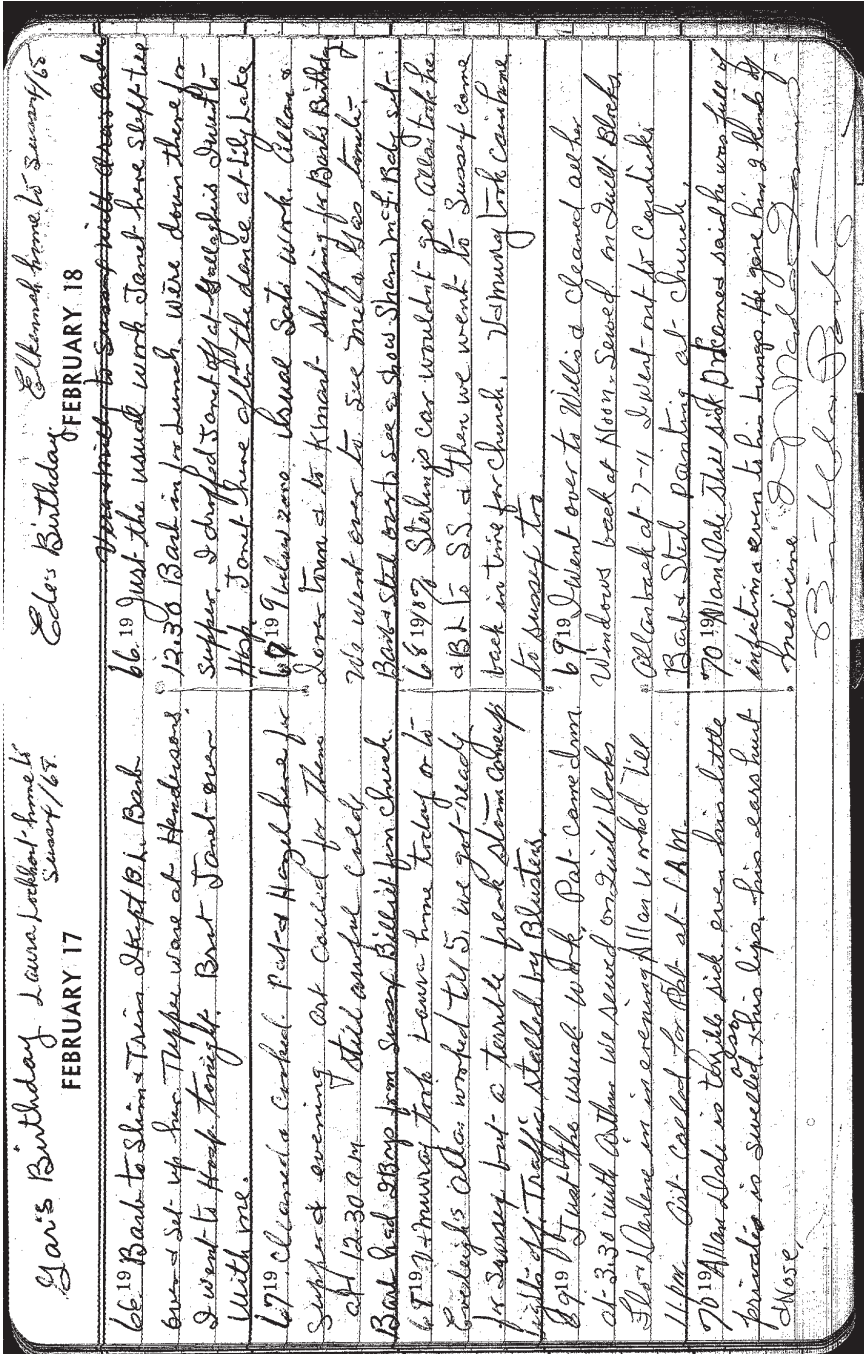 Gar's Birthday Laura Lockhart home to
Sussex/68
FEBRUARY 17
66 19 Barb to Slim & Trim I kept B.L. Barb
over & set up her Tupper ware at Hendersons
I went to Hosp tonight. Brot Janet over
with me.
67 19 Cleaned & Cooked. Pat & Hazel here for
Supper & evening Art called for them
at 12.30 a.m still awful cold,
Barb had 2 Boys from Sussex Billied from Church
68 19 V & Murray took Laura home today or to
Allan worked til 5, we got ready
for Sussex but a terrible freak storm came up
lights off Traffic stalled by Blusters.
69 19 Just the usual work. Pat came down
at 3.30 with Arthur we sewed on Quilt blocks
Flo & Darlene in evening Allan worked Till
11. P.M. Art called for Pat at 1 A.M.
70 19 Allan Dale is terrible sick even his little
privates is swelled, also & his lips, & his ears hurt
& Nose.
Ede's Birthday Elkannah home to Sussex/65
FEBRUARY 18
66 19 Just the usual work Janet here slept till
12.30 Barb in for Lunch. Were down there for
supper, I dropped Janet off at Gallaghers I went to
Hosp Janet here after the dance at Lily Lake
67 19 9 below zero usual Sats work. Allan &
I over town & to Kmart shopping for Barb's Birthday
We went over to see Mel & Gas tonite.
Barb & Sted over to see a show Sharon McF. Baby sit.
68 19 Sterlings car wouldn't go, Allan took he
& BL to SS & then we went to Sussex come
back in time for church. V & Murray took Caís home
to Sussex too
69 19 I went over to Willis & cleaned all her
Windows back at Noon. Sewed on Quilt Blocks,
Allan back at 7-11 I went out to
Barb & Sted painting at church.
70 19 Allan Dale still sick Dr said he was full of
infection & even to his Lungs. He gave him 2 kinds of
medicine